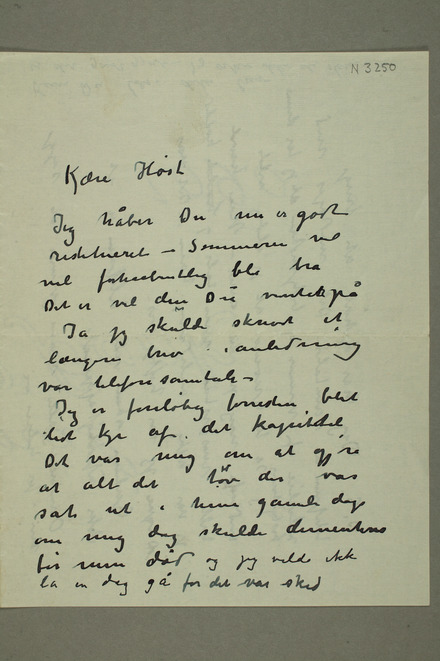 N 3250
Kære Høst
Jeg håber Du nu er godt
restitueret – Sommeren vil
vel forhaabentlig bli bra
Det er vel den Du venter på
Ja jeg skulde skrevet et
længere brev i anledning
vor telefonsamtale –
Jeg er foreløbig forresten blet
lidt kje af det kapittel
Det var mig om at gjøre
at alt det tøv der var
sat ut i hine gamle dage
om mig dag skulde dementeres
før min död og jeg vilde ikke
la en dag gå før det var sked